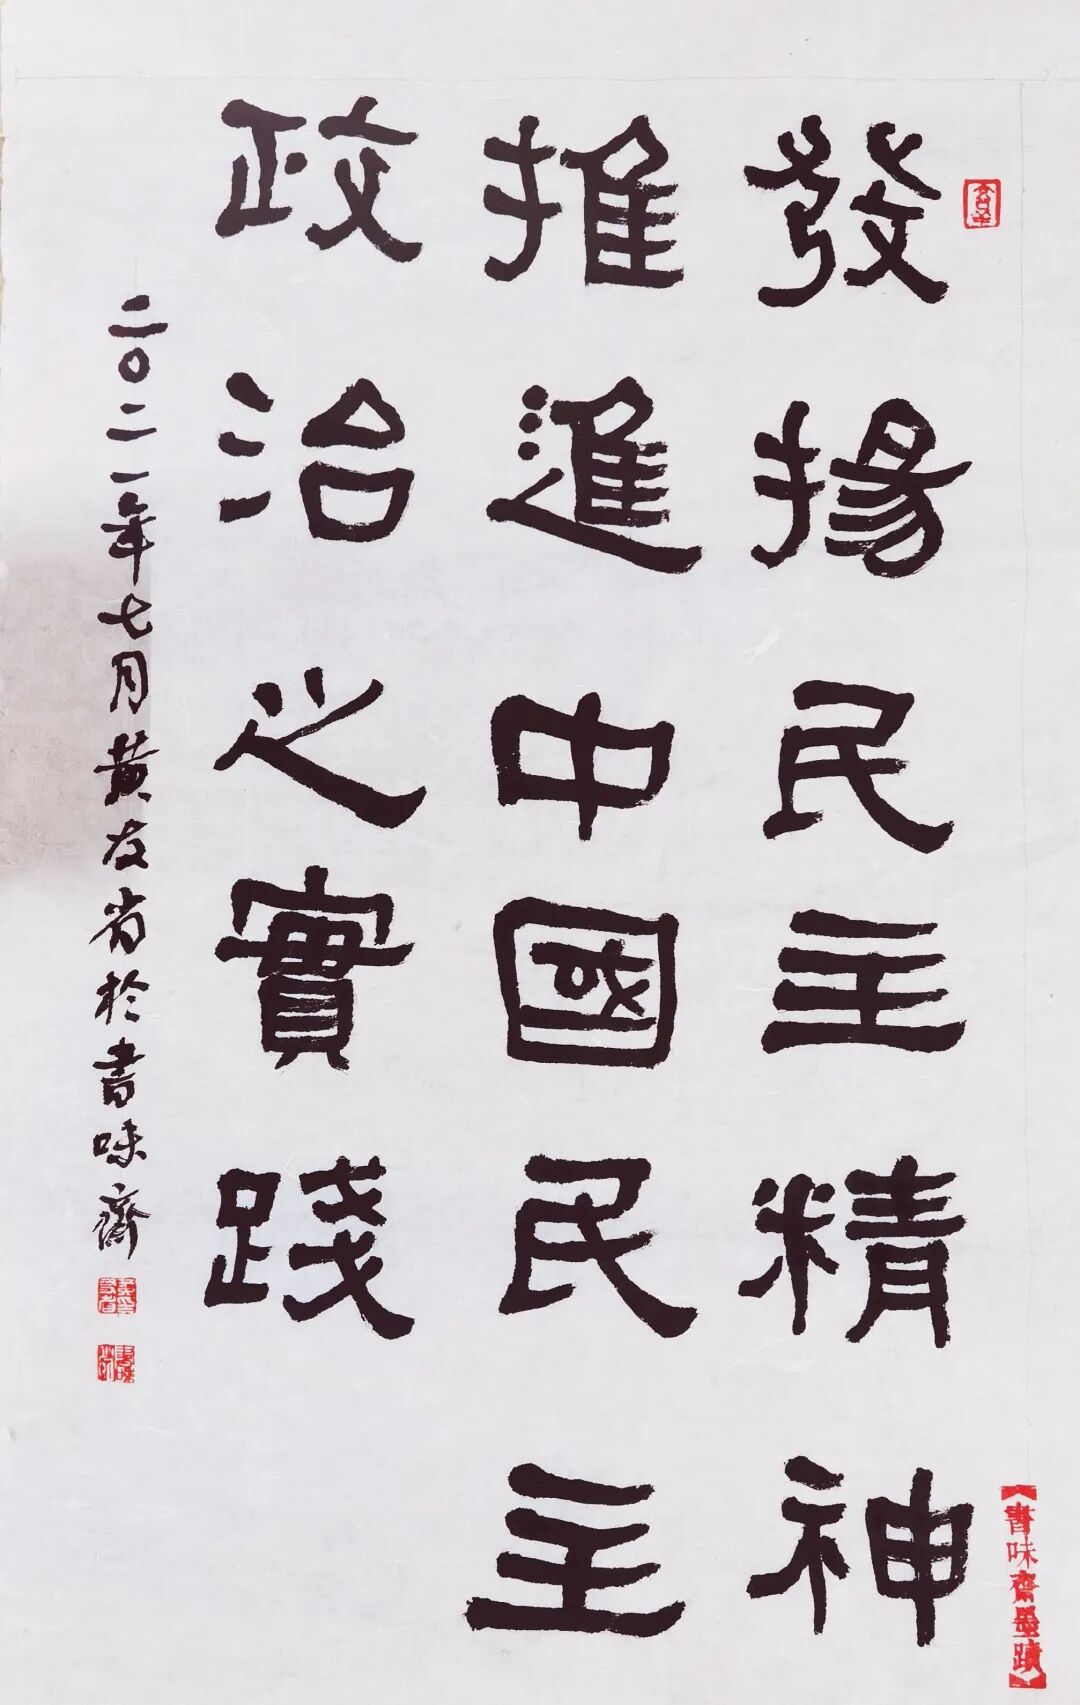 發揚民主精神
推進中國民主
政治之實踐
二〇二一年七月黃友省於書味齋
【書味齋墨蹟】